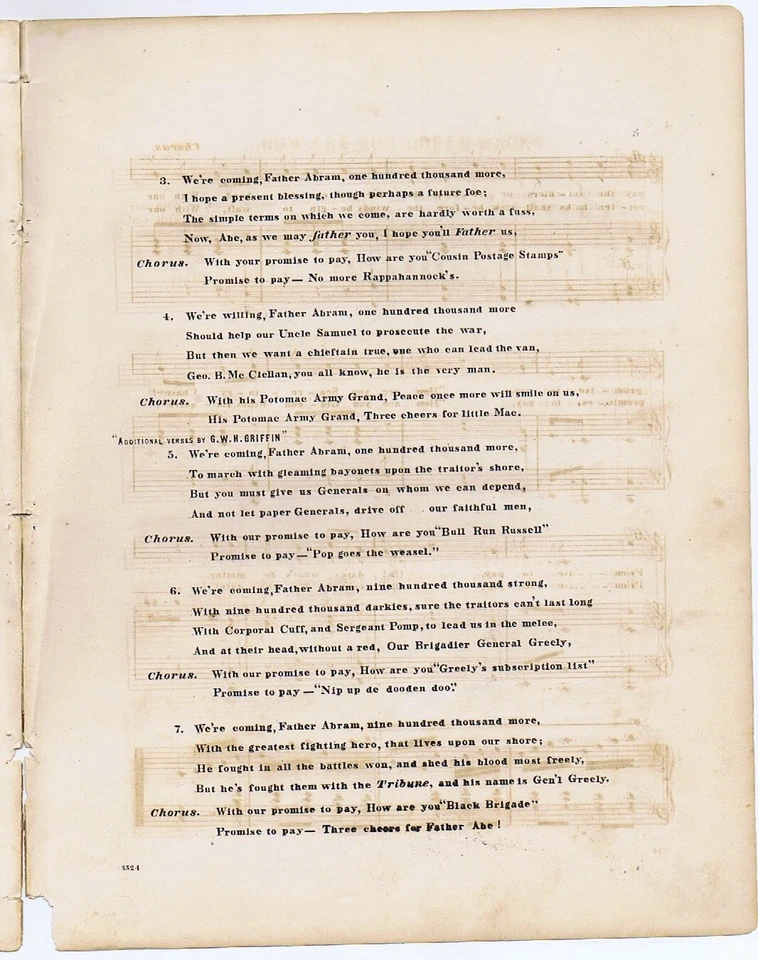 5
3. We're coming, Father Abram, one hundred thousand more,
I hope a present blessing, though perhaps a future foe;
The simple terms on which we come, are hardly worth a fuss,
Now, Abe, as we may father you, I hope you'll Father us,
Chorus. With your promise to pay, How are you "Cousin Postage Stamps"
Promise to pay— No more Rappahannock's.
4. We're willing, Father Abram, one hundred thousand more
Should help our Uncle Samuel to prosecute the war,
But then we want a chieftain true, one who can lead the van,
Geo. B. Mc Clellan, you all know, he is the very man.
Chorus. With his Potomac Army Grand, Peace once more will smile on us,
His Potomac Army Grand, Three cheers for little Mac.
"ADDITIONAL VERSES BY G.W.H. GRIFFIN"
5. We're coming, Father Abram, one hundred thousand more,
To march with gleaming bayonets upon the traitor's shore,
But you must give us Generals on whom we can depend,
And not let paper Generals, drive off our faithful men,
Chorus. With our promise to pay, How are you "Bull Run Russell"
Promise to pay—"Pop goes the weasel."
6. We're coming, Father Abram, nine hundred thousand strong,
With nine hundred thousand darkies, sure the traitors can't last long
With Corporal Cuff, and Sergeant Pomp, to lead us in the melee,
And at their head, without a red, Our Brigadier General Greely,
Chorus. With our promise to pay, How are you "Greely's subscription list"
Promise to pay—"Nip up de dooden doo".
7. We're coming, Father Abram, nine hundred thousand more,
With the greatest fighting hero, that lives upon our shore;
He fought in all the battles won, and shed his blood most freely,
But he's fought them with the Tribune, and his name is Gen'l Greely.
Chorus. With our promise to pay, How are you "Black Brigade"
Promise to pay— Three cheers for Father Abe!
5524